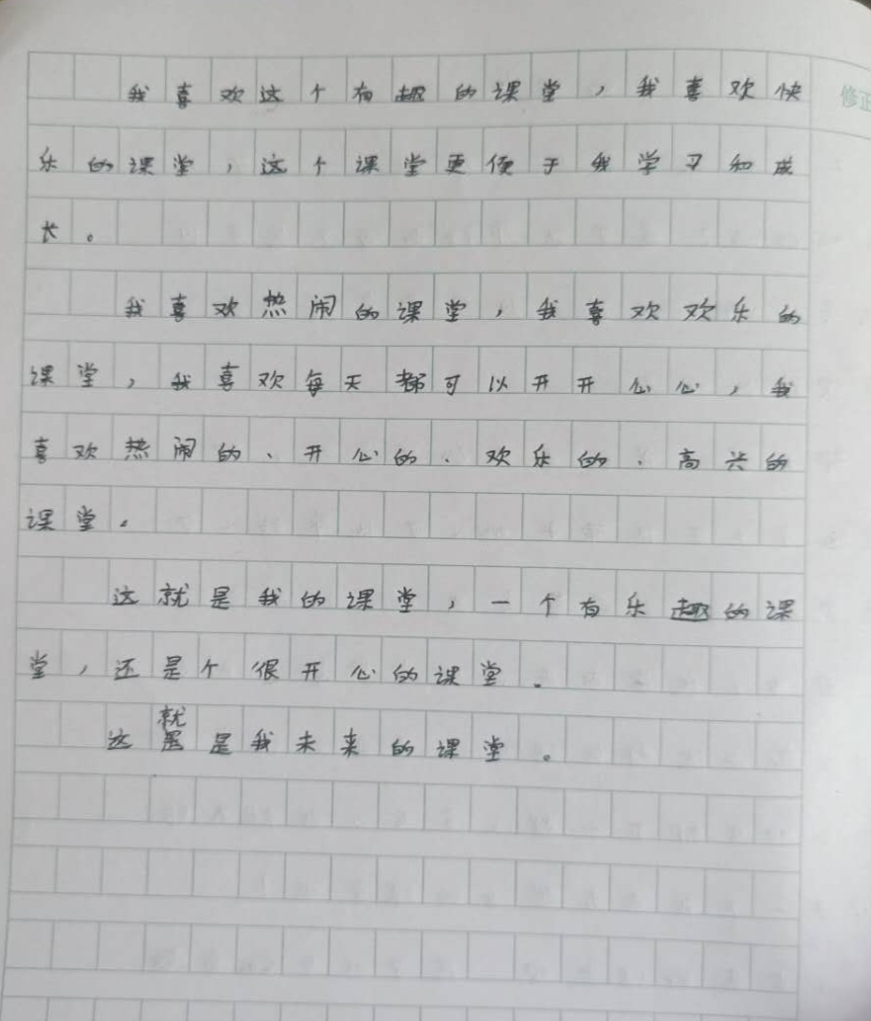 我喜欢这个有趣的课堂，我喜欢快
乐的课堂，这个课堂更便于我学习和成
长。
我喜欢热闹的课堂，我喜欢欢乐的
课堂，我喜欢每天都可以开开心心，我
喜欢热闹的、开心的、欢乐的、高兴的
课堂。
这就是我的课堂，一个有乐趣的课
堂，还是个很开心的课堂。
这就是我未来的课堂。
修正